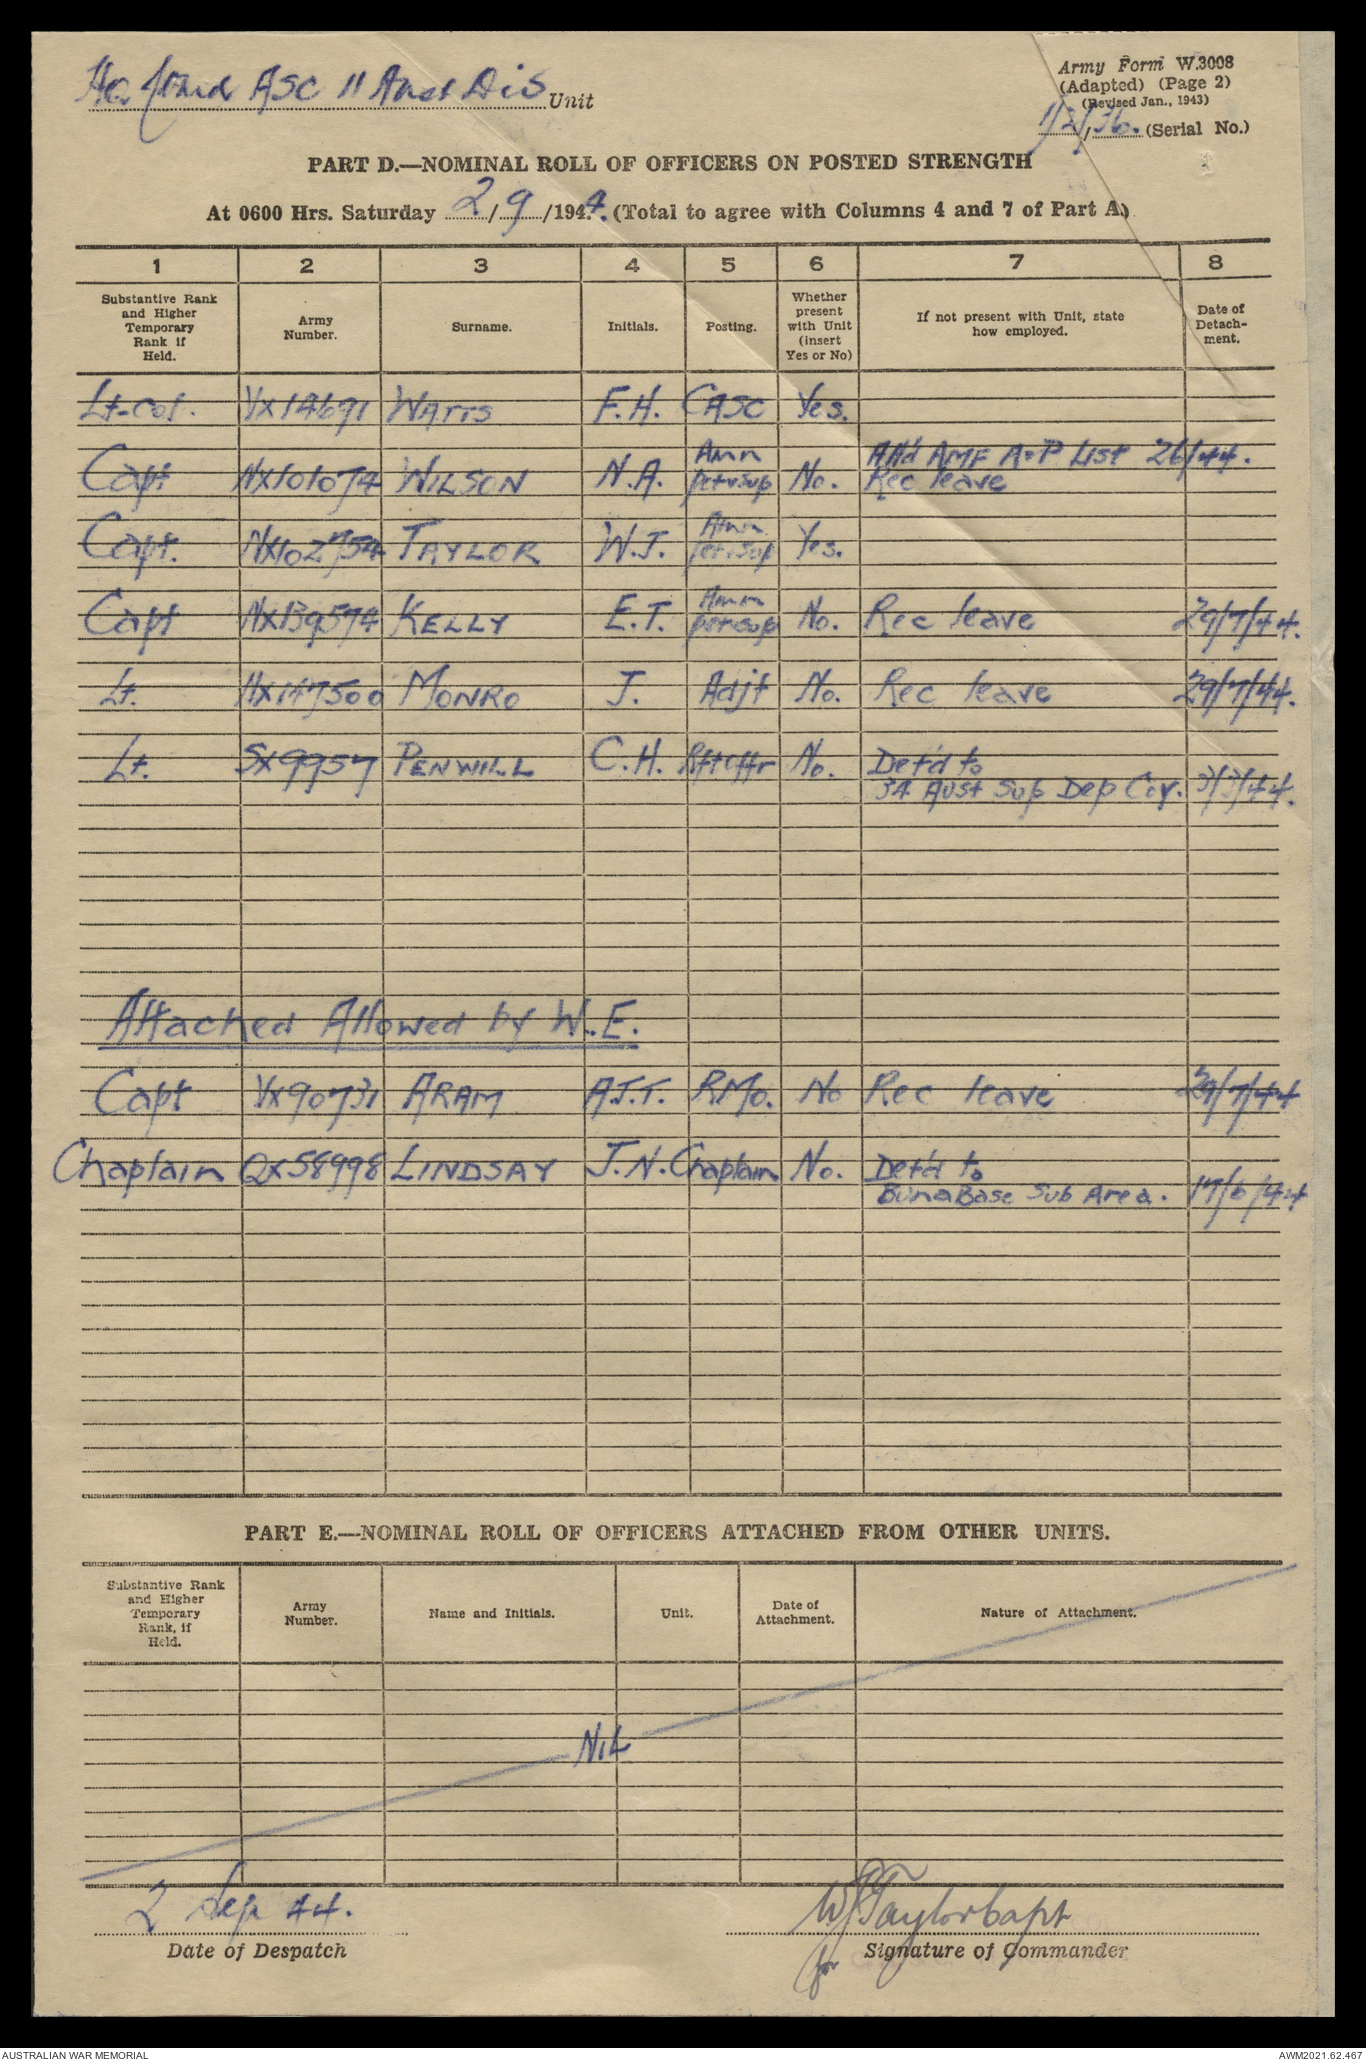 HQ Comd ASC 11 Aust Div Unit
Army Form W.3008
(Adapted) (Page 2)
(Revised Jan., 1943)
1/2/36. (Serial No.)
PART D.—NOMINAL ROLL OF OFFICERS ON POSTED STRENGTH
At 0600 Hrs. Saturday 2/9/1944. (Total to agree with Columns 4 and 7 of Part A.)
1 2 3 4 5 6 7 8
Substantive Rank and Higher Temporary Rank if Held.
Army Number.
Surname.
Initials.
Posting.
Whether present with Unit (insert Yes or No)
If not present with Unit, state how employed.
Date of Detachment.
Lt-Col. VX14691 WATTS F.H. CASC Yes.
Capt NX101074 WILSON N.A. Amn pet & sup No. Att'd AMF A&P List 26/44.
Rec leave
Capt. NX102754 TAYLOR W.J. Amm pet & sup Yes.
Capt NX139574 KELLY E.T. Amm pet & sup No. Rec leave 29/7/44.
Lt. NX147500 MONRO J. Adjt No. Rec leave 29/7/44.
Lt. SX9957 PENWILL C.H. Rftoffr No. Det'd to
34 Aust Sup Dep Coy. 3/3/44.
Attached Allowed by W.E.
Capt VX90731 ARAM A.J.T. RMO. No Rec leave 29/7/44
Chaplain QX58998 LINDSAY J.N. Chaplain No. Det'd to
Buna Base Sub Area. 17/6/44
PART E.—NOMINAL ROLL OF OFFICERS ATTACHED FROM OTHER UNITS.
Substantive Rank and Higher Temporary Rank, if Held.
Army Number.
Name and Initials.
Unit.
Date of Attachment.
Nature of Attachment.
NIL
2 Sep 44.
WJTaylor Capt
Date of Despatch
for Signature of Commander
AUSTRALIAN WAR MEMORIAL
AWM2021.62.467